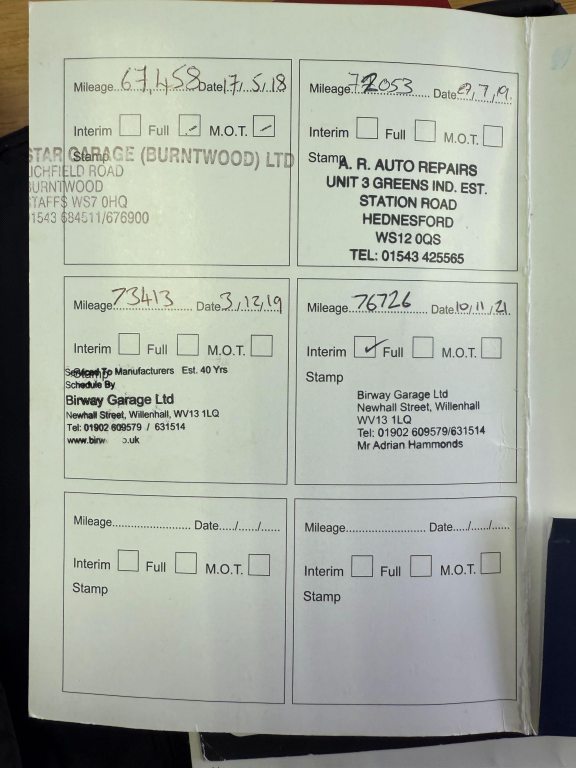 Mileage 67,458 Date 17/5/18
Interim Full M.O.T.
Stamp
STAR GARAGE (BURNTWOOD) LTD
LICHFIELD ROAD
BURNTWOOD
STAFFS WS7 0HQ
01543 684511/676900
Mileage 72053 Date /7/19.
Interim Full M.O.T.
Stamp
A. R. AUTO REPAIRS
UNIT 3 GREENS IND. EST.
STATION ROAD
HEDNESFORD
WS12 0QS
TEL: 01543 425565
Mileage 73413 Date 3/12/19
Interim Full M.O.T.
Stamp
Serviced To Manufacturers Est. 40 Yrs
Schedule By
Birway Garage Ltd
Newhall Street, Willenhall, WV13 1LQ
Tel: 01902 609579 / 631514
www.birw .co.uk
Mileage 76726 Date 10/11/21
Interim Full M.O.T.
Stamp
Birway Garage Ltd
Newhall Street, Willenhall
WV13 1LQ
Tel: 01902 609579/631514
Mr Adrian Hammonds
Mileage Date / /
Interim Full M.O.T.
Stamp
Mileage Date / /
Interim Full M.O.T.
Stamp